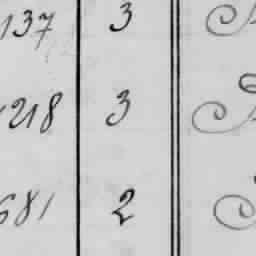 137 3
218 3
681 2